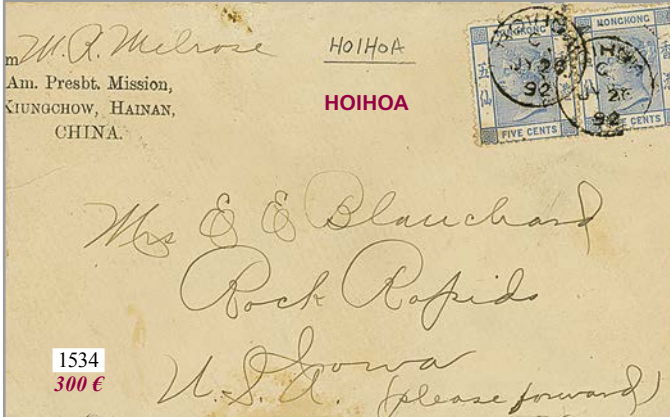 m W. R. Melrose
Am. Presbt. Mission,
KIUNGCHOW, HAINAN,
CHINA.
HOIHOA
HOIHOA
HONGKONG
五 仙
FIVE CENTS
HOIHOW
C
JY 26
92
HONGKONG
CENTS
C
26
92
Mrs E E Blanchard
Rock Rapids
Iowa
U.S.A. (please forward)
1534
300 €